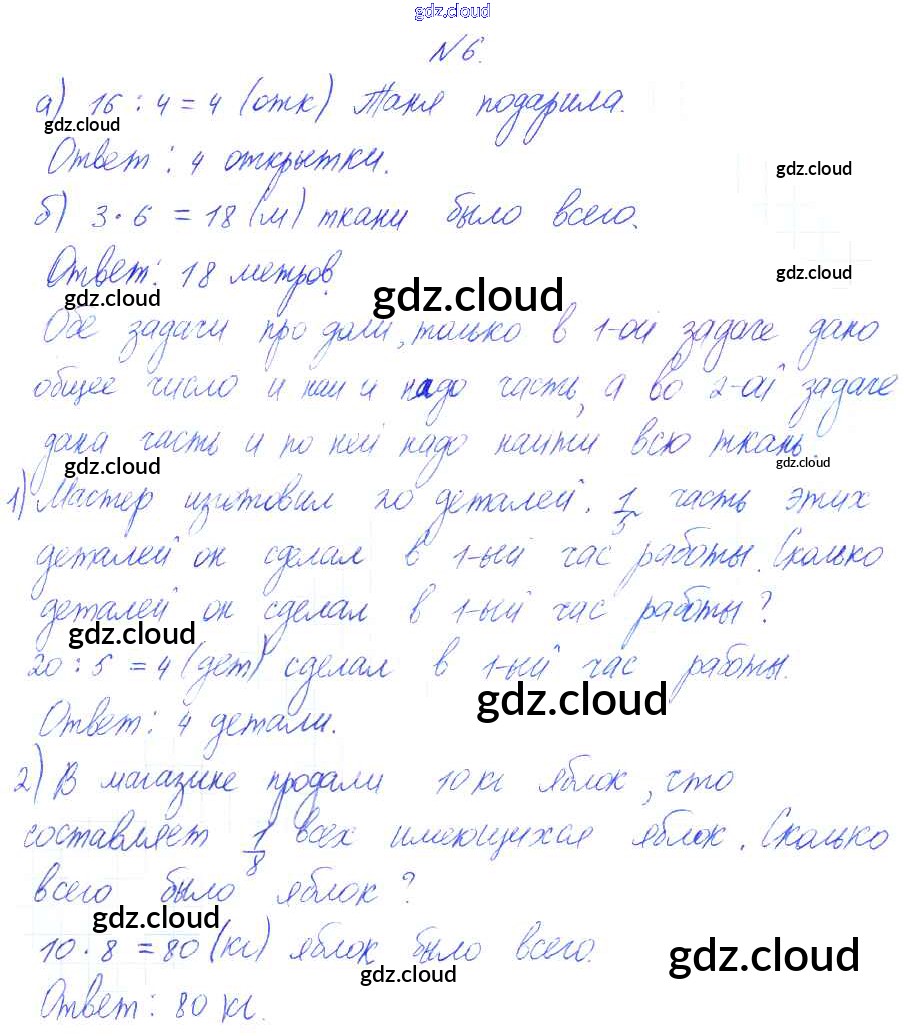 gdz.cloud
№6.
а) 16 : 4 = 4 (отк) Таня подарила.
gdz.cloud
Ответ: 4 открытки.
gdz.cloud
б) 3 · 6 = 18 (м) ткани было всего.
Ответ: 18 метров.
gdz.cloud
gdz.cloud
gdz.cloud
Обе задачи про доли, только в 1-ой задаче дано
общее число и надо часть, а во 2-ой задаче
дана часть и по ней надо найти всю ткань.
gdz.cloud
gdz.cloud
1) Мастер изготовил 20 деталей. 1/5 часть этих
деталей он сделал в 1-ый час работы. Сколько
деталей он сделал в 1-ый час работы?
gdz.cloud
20 : 5 = 4 (дет) сделал в 1-ый час работы.
gdz.cloud
Ответ: 4 детали.
2) В магазине продали 10 кг яблок, что
составляет 1/8 всех имеющихся яблок. Сколько
всего было яблок?
gdz.cloud
10 · 8 = 80 (кг) яблок было всего.
gdz.cloud
gdz.cloud
Ответ: 80 кг.